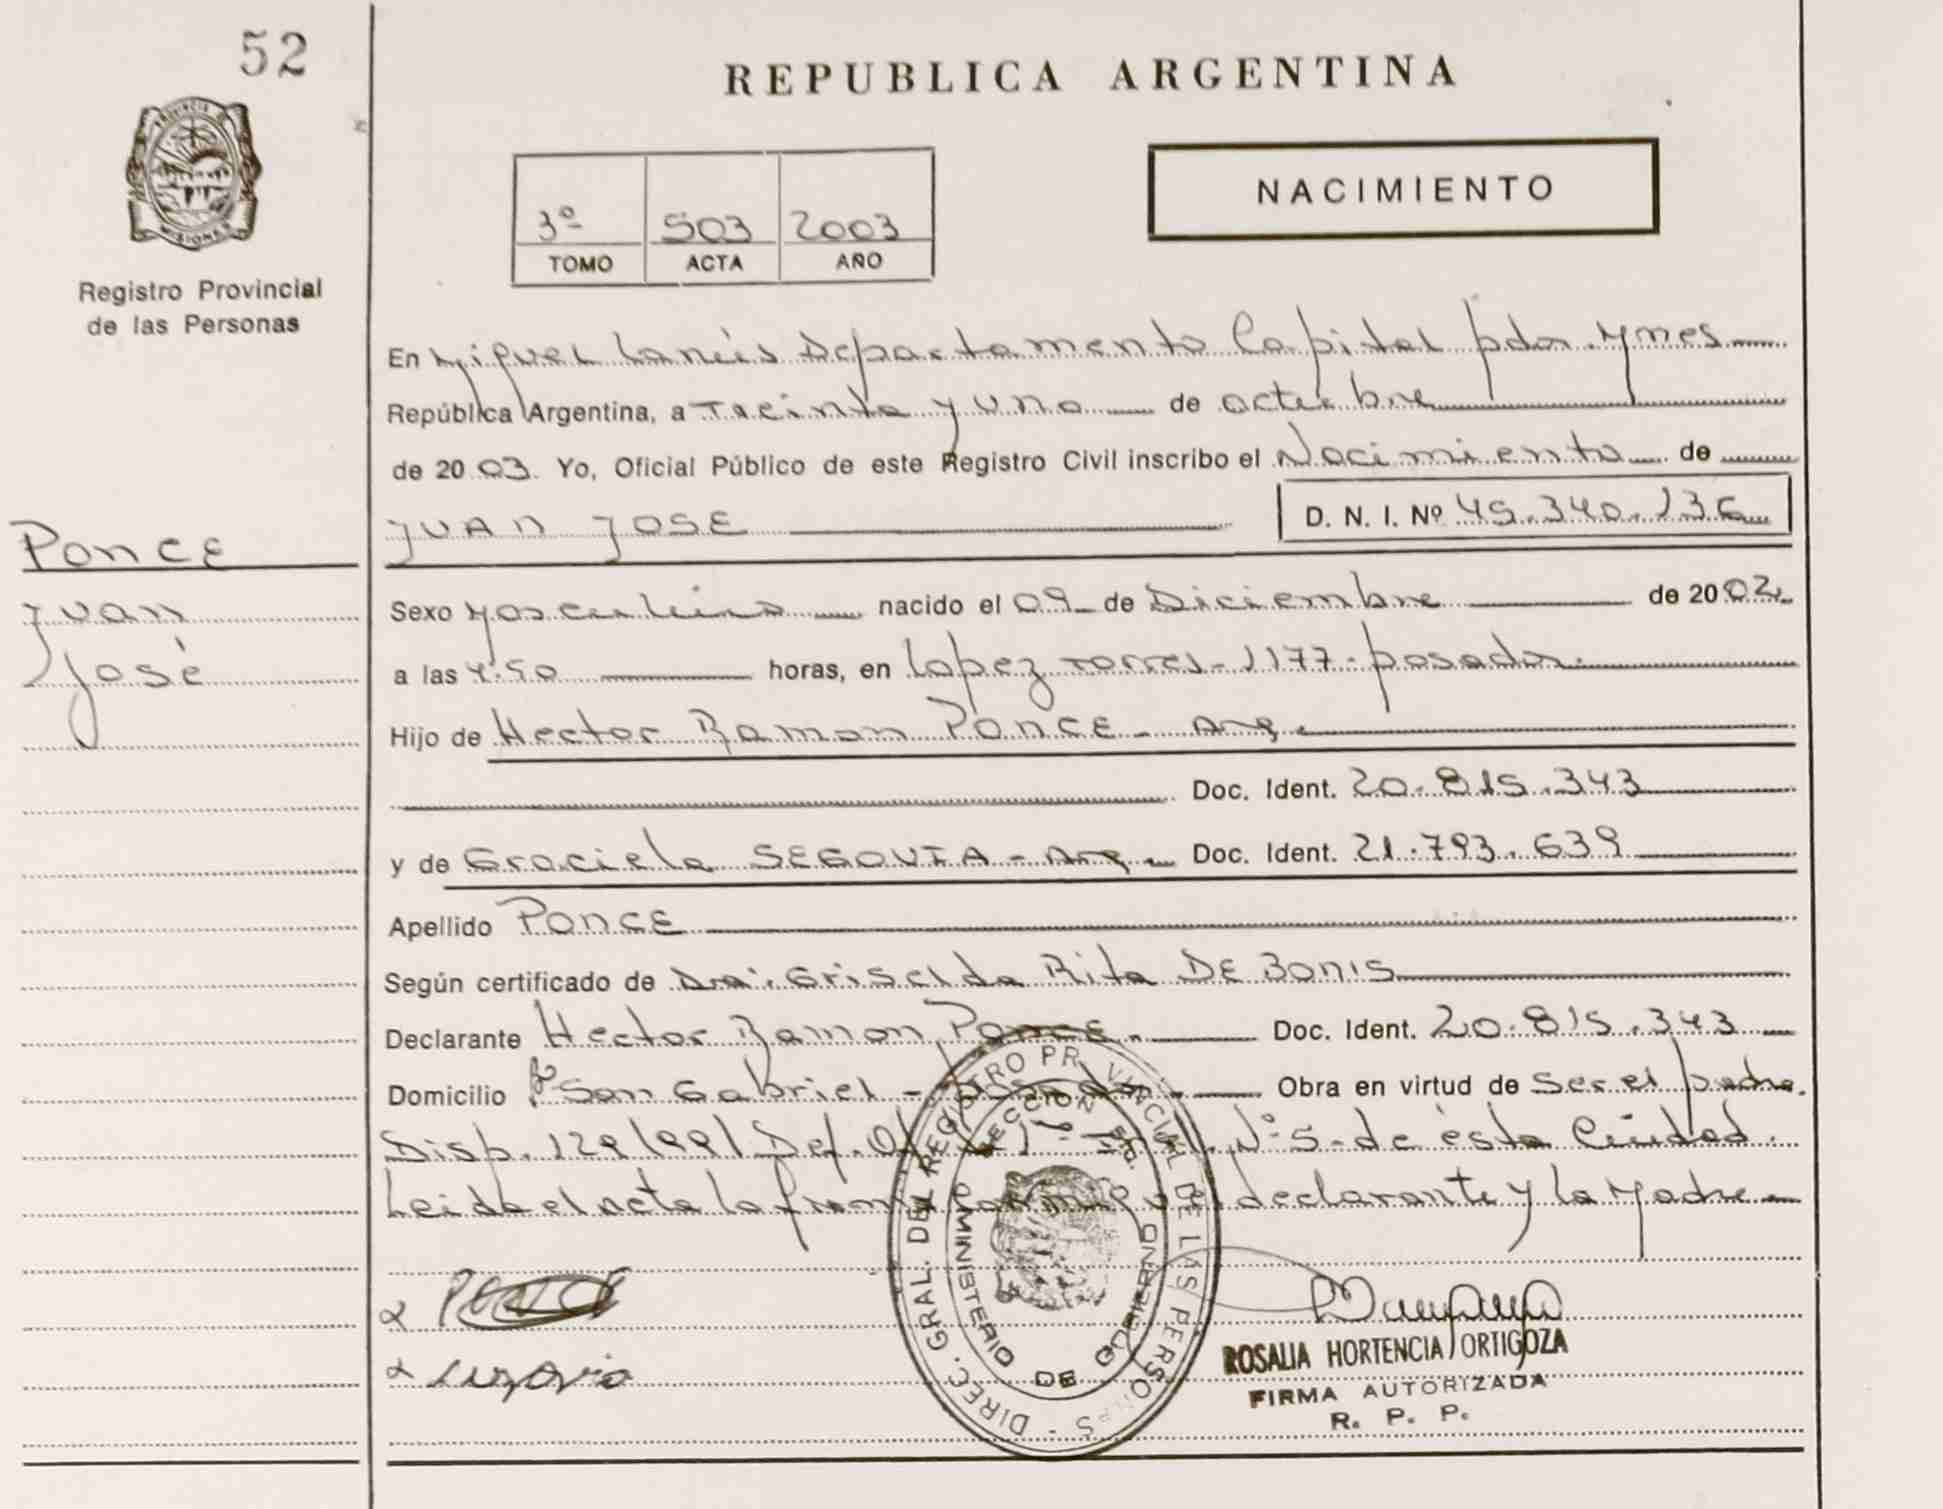 52
REPUBLICA ARGENTINA
PROVINCIA DE
MISIONES
Registro Provincial
de las Personas
NACIMIENTO
3º 503 2003
TOMO ACTA AÑO
En Miguel Lanús Departamento Capital pdas. Mnes
República Argentina, a Treinta y uno de octubre
de 2003. Yo, Oficial Público de este Registro Civil inscribo el Nacimiento de
JUAN JOSE
D. N. I. Nº 45.340.136
PONCE
Juan
José
Sexo Masculino nacido el 09 de Diciembre de 2002
a las 4:50 horas, en Lopez Torres-1177-posadas.
Hijo de Hector Ramon PONCE - Arg.
Doc. Ident. 20.815.343
y de Graciela SEGOVIA - Arg. Doc. Ident. 21.793.639
Apellido PONCE
Según certificado de Dra. Griselda Rita DE BONIS
Declarante Hector Ramon PONCE. Doc. Ident. 20.815.343
Domicilio Bº San Gabriel - Obra en virtud de Ser el padre.
Disp. 129/991 Def. Of. Nº 5- de ésta Ciudad.
Leida el acta la firma declarante y la Madre
PONCE
ROSALIA HORTENCIA ORTIGOZA
FIRMA AUTORIZADA
R. P. P.
DIREC. GRAL. DEL REGISTRO PROVINCIAL DE LAS PERSONAS
MINISTERIO DE GOBIERNO
SECCION